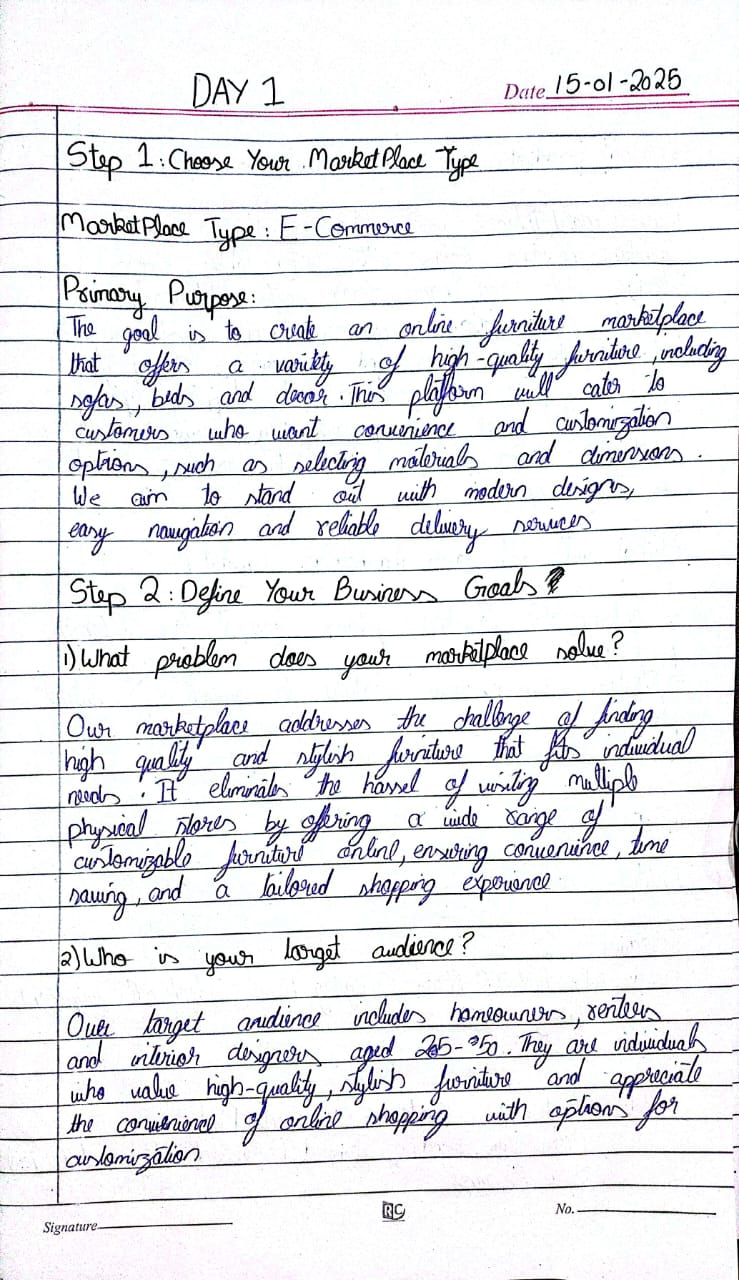 DAY 1
Date 15-01-2025
Step 1: Choose Your MarketPlace Type
MarketPlace Type: E-Commerce
Primary Purpose:
The goal is to create an online furniture marketplace
that offers a variety of high-quality furniture, including
sofas, beds and decor. This platform will cater to
customers who want convenience and customization
options, such as selecting materials and dimensions.
We aim to stand out with modern designs,
easy navigation and reliable delivery services
Step 2: Define Your Business Goals
1) What problem does your marketplace solve?
Our marketplace addresses the challenge of finding
high quality and stylish furniture that fits individual
needs. It eliminates the hassel of visiting multiple
physical stores by offering a wide range of
customizable furniture online, ensuring convenience, time
saving, and a tailored shopping experience
2) Who is your target audience?
Our target audience includes homeowners, renters
and interior designers aged 25-50. They are individuals
who value high-quality, stylish furniture and appreciate
the convenience of online shopping with options for
customization
RC
Signature
No.